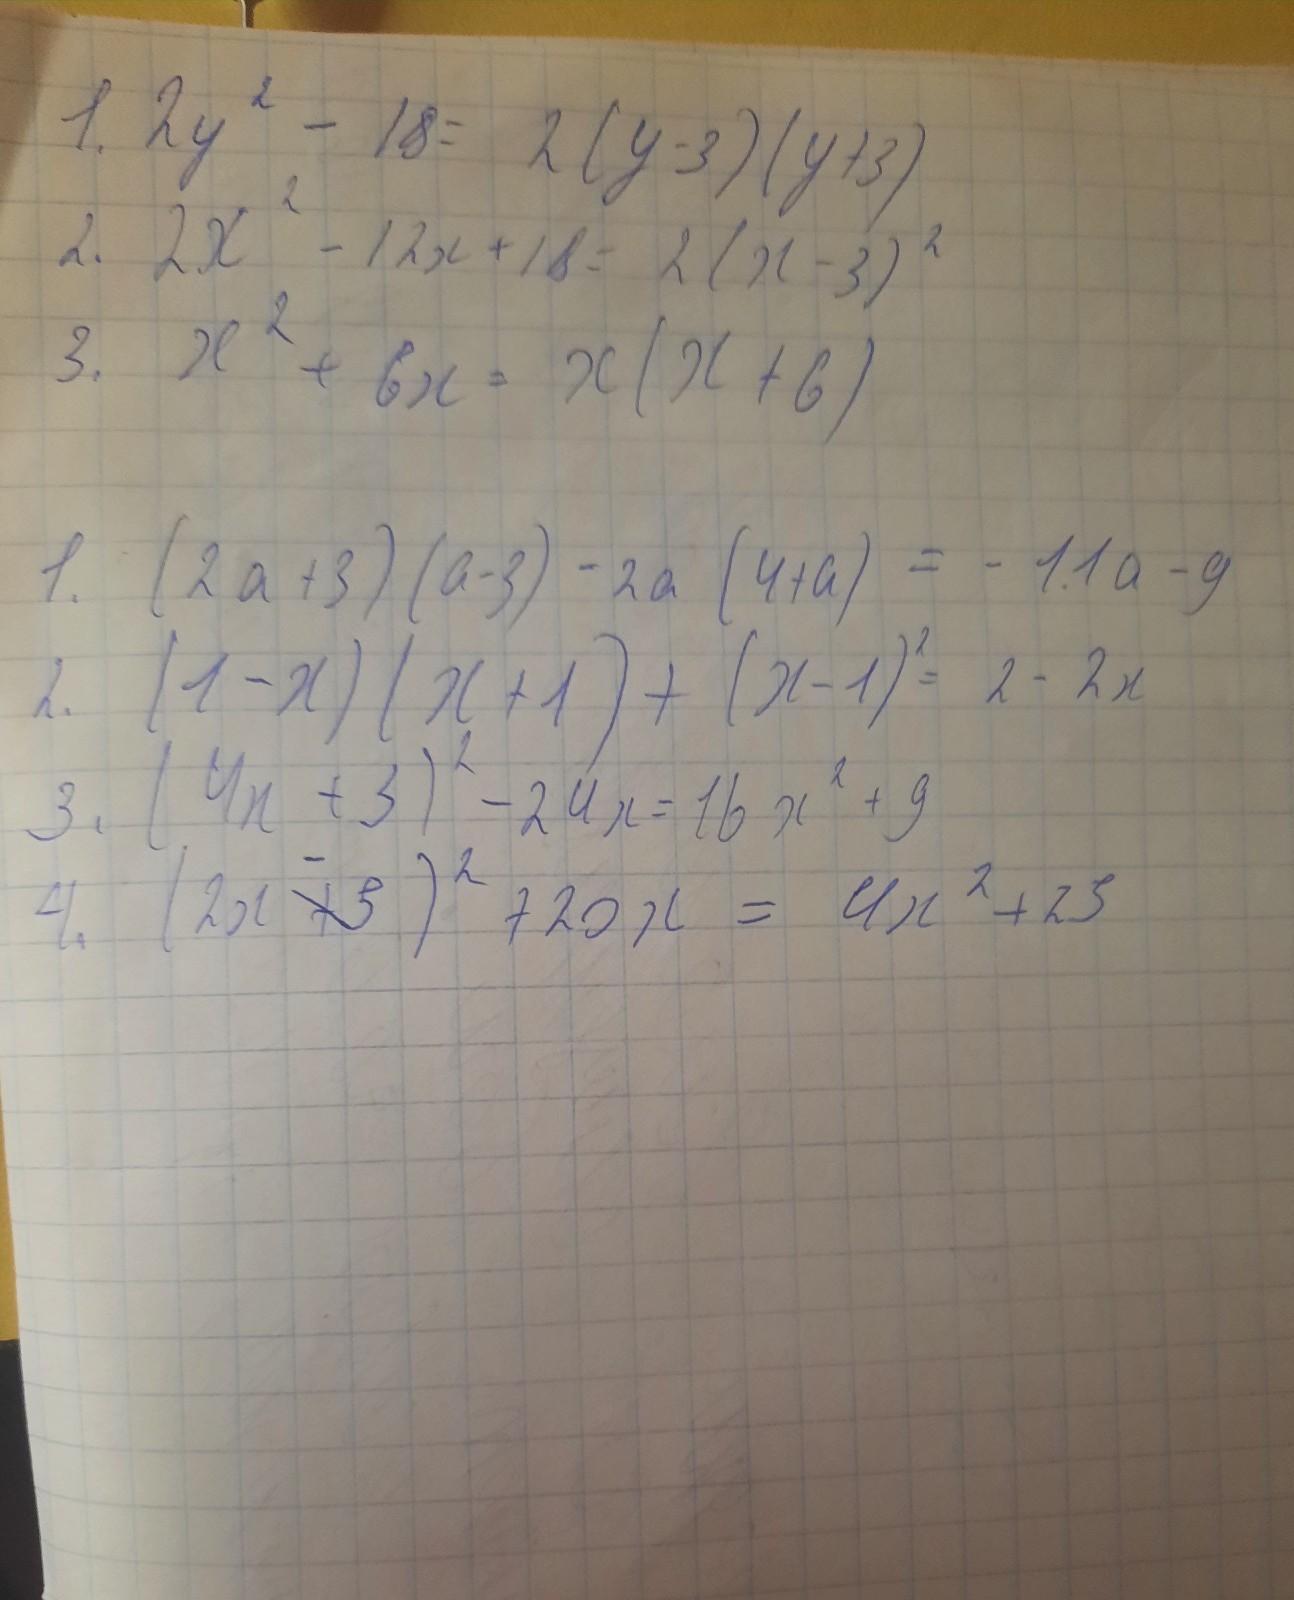 1. 2y² - 18 = 2(y-3)(y+3)
2. 2x² - 12x + 18 = 2(x-3)²
3. x² + 6x = x(x+6)
1. (2a+3)(a-3) - 2a(4+a) = -11a - 9
2. (1-x)(x+1) + (x-1)² = 2 - 2x
3. (4x+3)² - 24x = 16x² + 9
4. (2x - 5)² + 20x = 4x² + 25